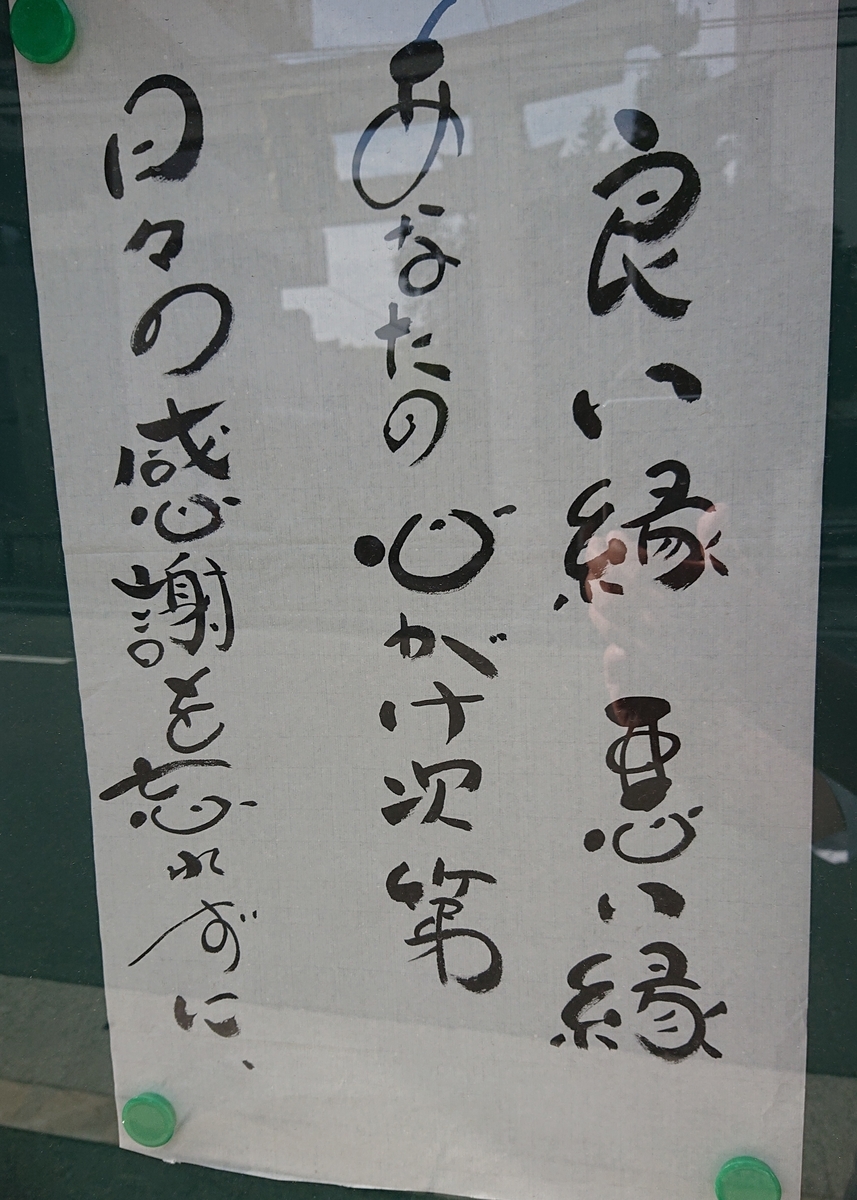 良い縁 悪い縁
あなたの心がけ次第
日々の感謝を忘れずに、